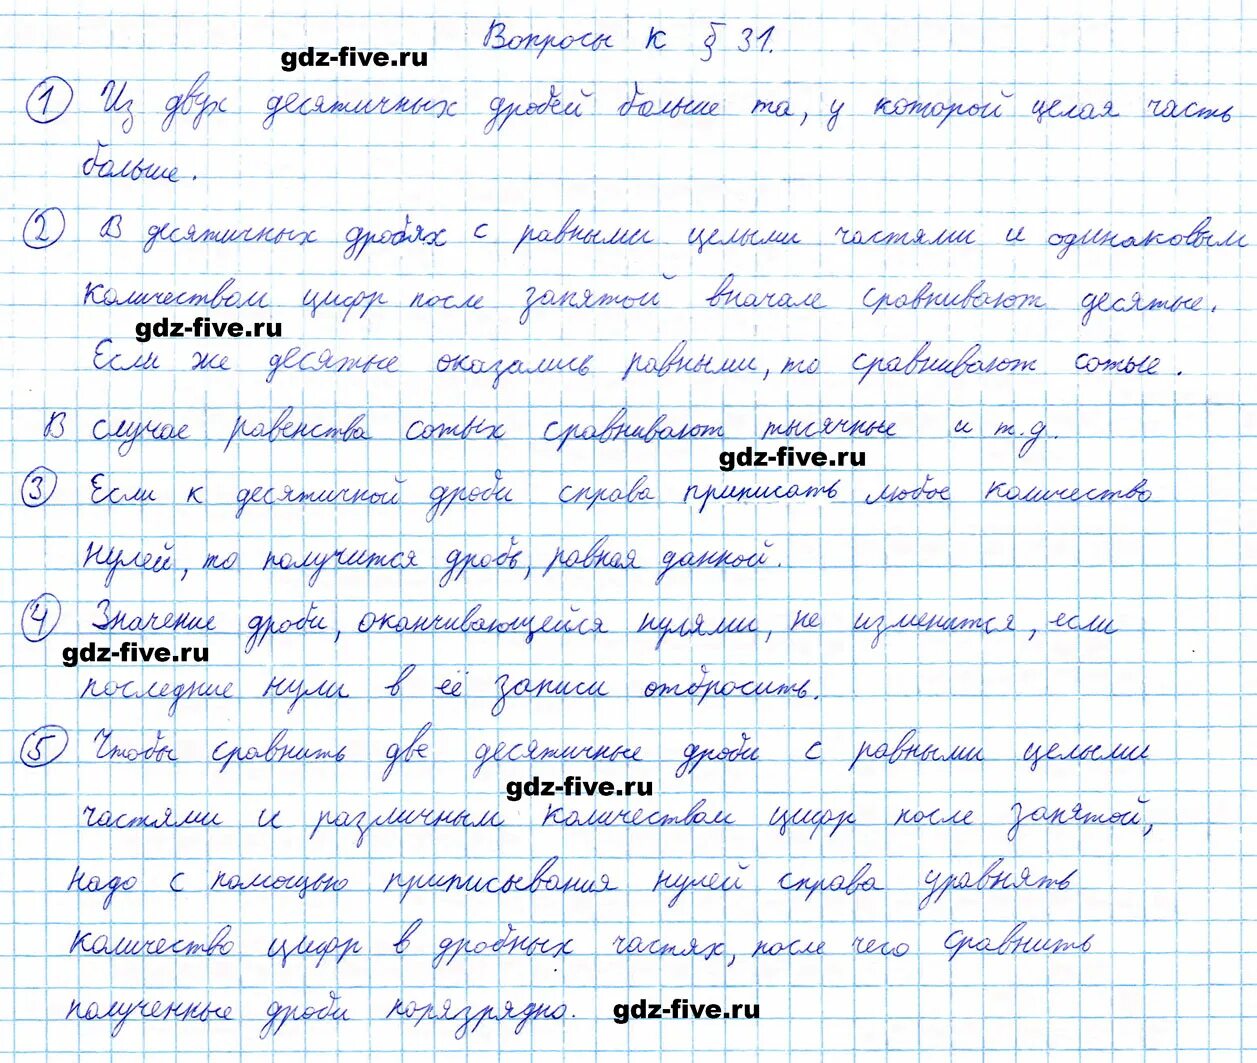 Вопросы к § 31.
gdz-five.ru
1 Из двух десятичных дробей больше та, у которой целая часть
больше.
2 В десятичных дробях с равными целыми частями и одинаковым
количеством цифр после запятой вначале сравнивают десятые.
gdz-five.ru
Если же десятые оказались равными, то сравнивают сотые.
В случае равенства сотых сравнивают тысячные и т.д.
gdz-five.ru
3 Если к десятичной дроби справа приписать любое количество
нулей, то получится дробь, равная данной.
4 Значение дроби, оканчивающейся нулями, не изменится, если
gdz-five.ru
последние нули в её записи отбросить.
5 Чтобы сравнить две десятичные дроби с равными целыми
gdz-five.ru
частями и различным количеством цифр после запятой,
надо с помощью приписывания нулей справа уравнять
количество цифр в дробных частях, после чего сравнить
полученные дроби поразрядно.
gdz-five.ru